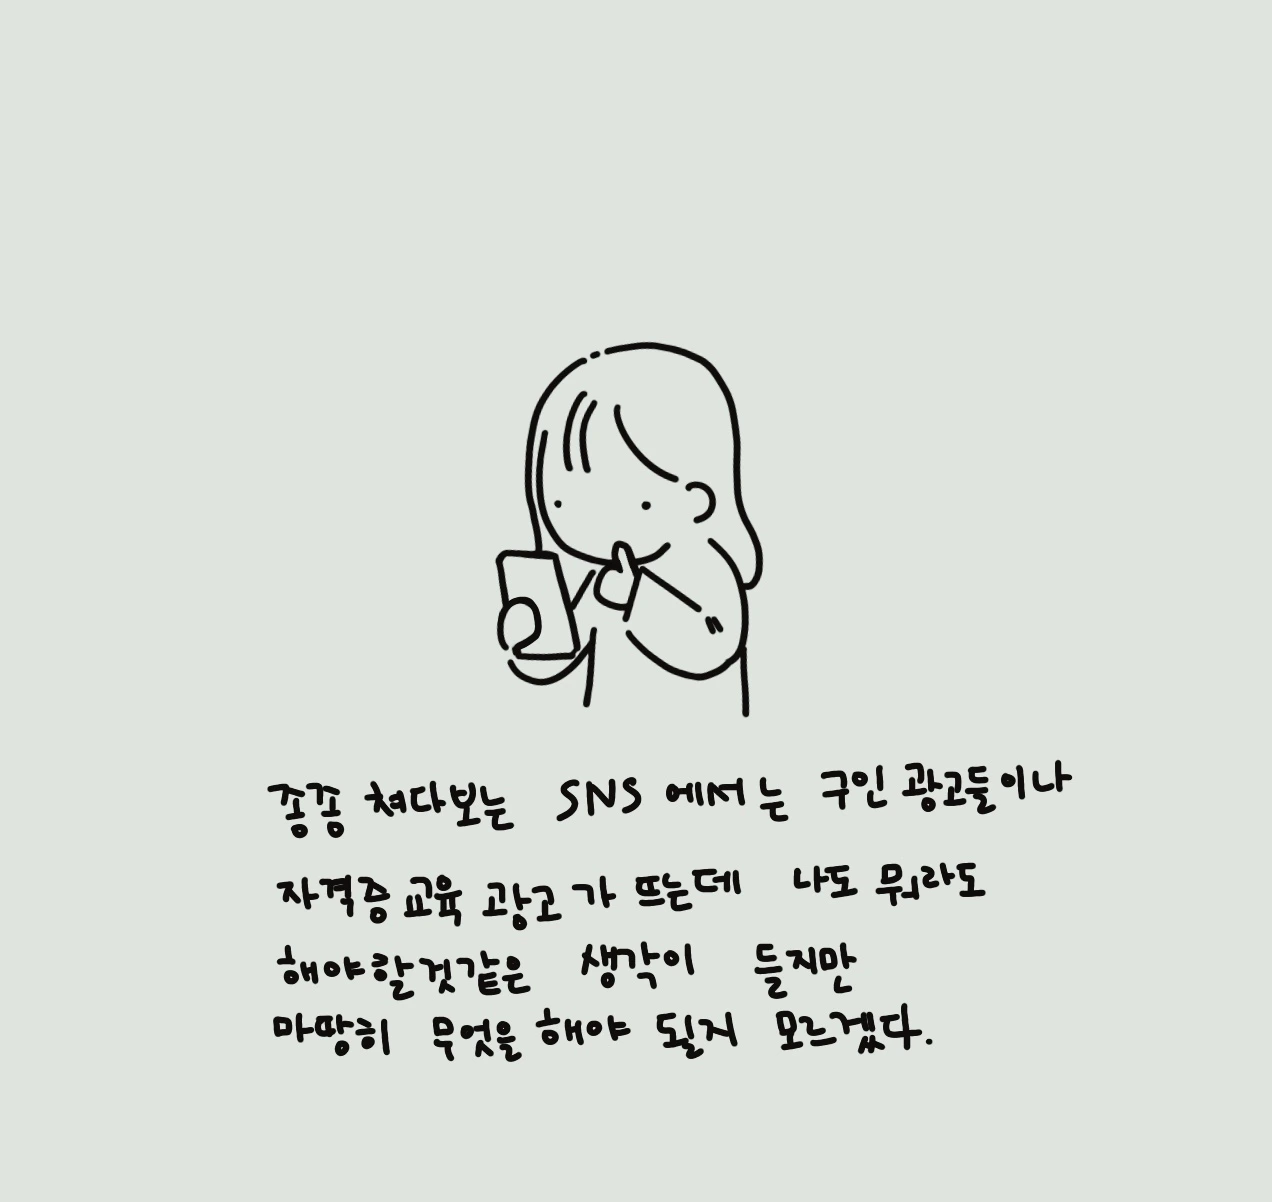 종종 쳐다보는 SNS에서는 구인 광고들이나
자격증 교육 광고가 뜨는데 나도 뭐라도
해야할것같은 생각이 들지만
마땅히 무엇을 해야 될지 모르겠다.